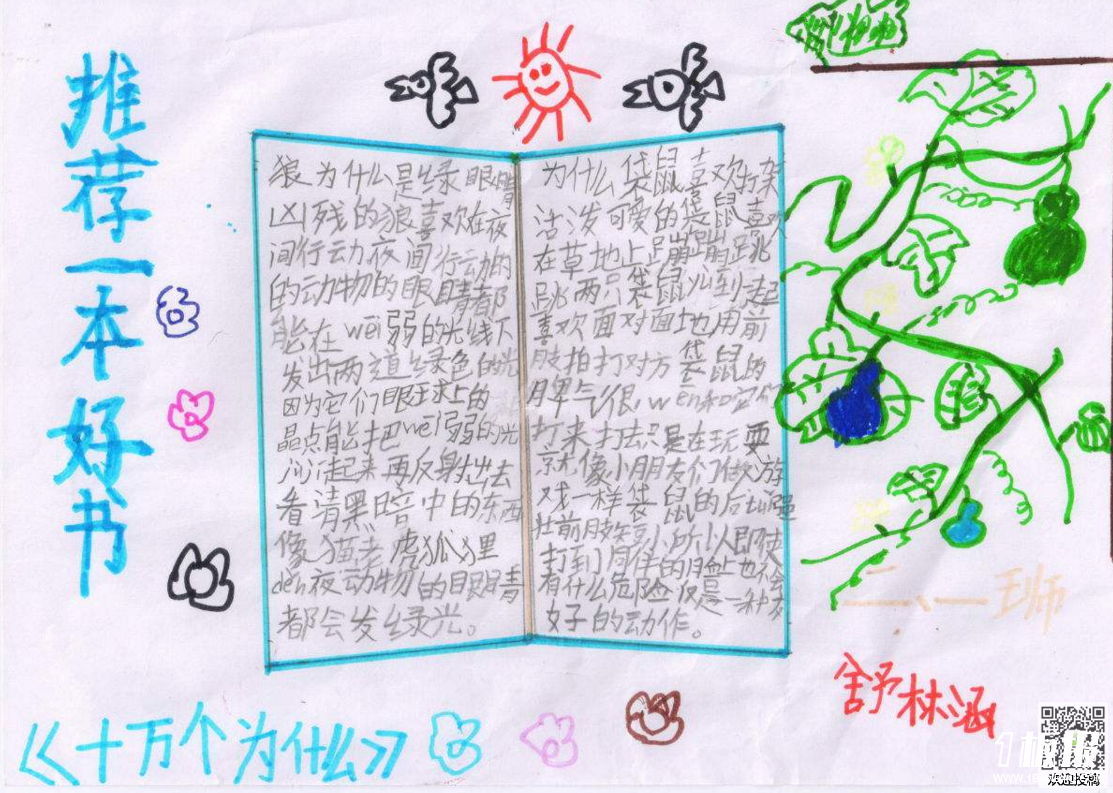 推荐一本好书
狼为什么是绿眼睛
凶残的狼喜欢在夜
间行动夜间行动的
的动物的眼睛都
能在wei弱的光线下
发出两道绿色的光
因为它们眼球上的
晶点能把wei弱的光
起来再反射出去
看清黑暗中的东西
像猫老虎狐狸
deh夜动物的眼睛
都会发绿光。
为什么袋鼠喜欢打架
活泼可爱的袋鼠喜欢
在草地上蹦蹦跳
跳两只袋鼠 到一起
喜欢面对面地用前
肢拍打对方袋鼠的
脾气很wen和它们
打来打去只是在玩耍
就像小朋友们做游
戏一样袋鼠的后 强
壮前肢短小所以即使
打到同伴的身上也不会
有什么危险仅是一种友
好的动作。
《十万个为什么》
舒林涵
欢迎投稿